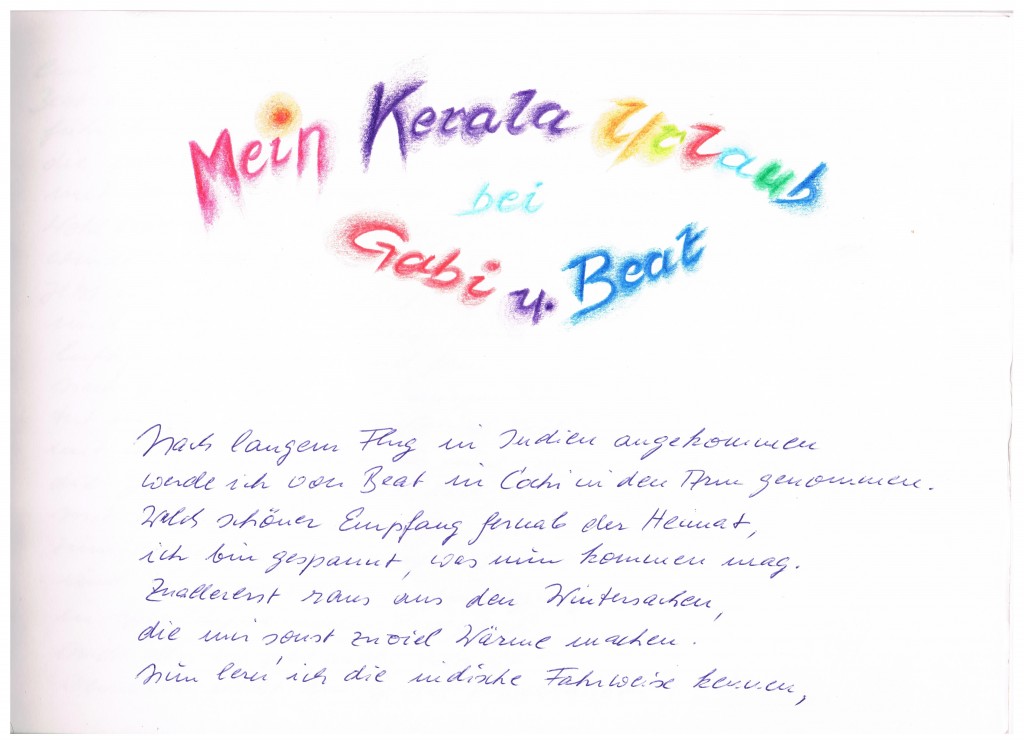 Mein Kerala Urlaub
bei
Gabi u. Beat
Nach langem Flug in Indien angekommen
werde ich von Beat in Cochi in den Arm genommen.
Welch schöner Empfang fernab der Heimat,
ich bin gespannt, was nun kommen mag.
Zuallererst raus aus den Wintersachen,
die mir sonst zuviel Wärme machen.
Nun lern' ich die indische Fahrweise kennen,